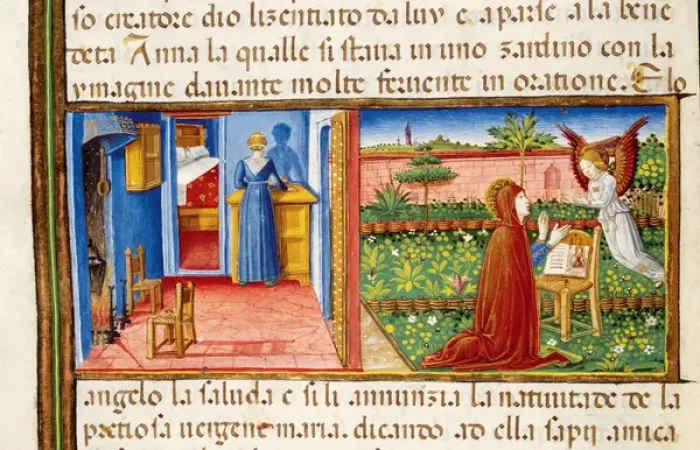 so creatore dio lizentiato da luy e aparse a la bene
deta Anna la qualle si staua in uno zardino con la
ymagine dauante molte feruente in oratione. E lo
angelo la saluda e si li annunzia la natiuitade de la
pretiosa uergene maria. dicando ad ella sapi amica